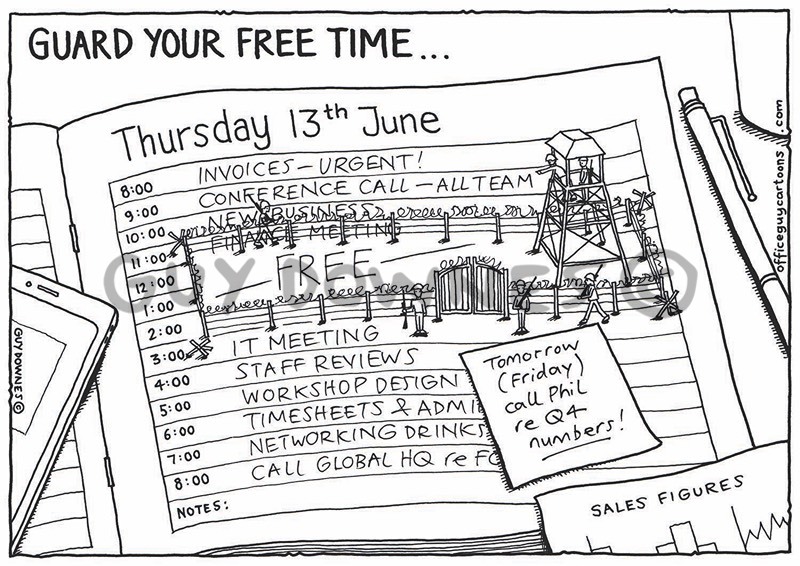 GUARD YOUR FREE TIME...
Thursday 13th June
8:00 INVOICES – URGENT!
9:00 CONFERENCE CALL – ALL TEAM
10:00 NEW BUSINESS
11:00 FINANCE MEETING
12:00 FREE
1:00
2:00
3:00 IT MEETING
4:00 STAFF REVIEWS
5:00 WORKSHOP DESIGN
6:00 TIMESHEETS & ADMI
7:00 NETWORKING DRINKS
8:00 CALL GLOBAL HQ re FC
NOTES:
Tomorrow
(Friday)
call Phil
re Q4
numbers!
SALES FIGURES
GUY DOWNES ©
officeguycartoons.com
GUY DOWNES ©